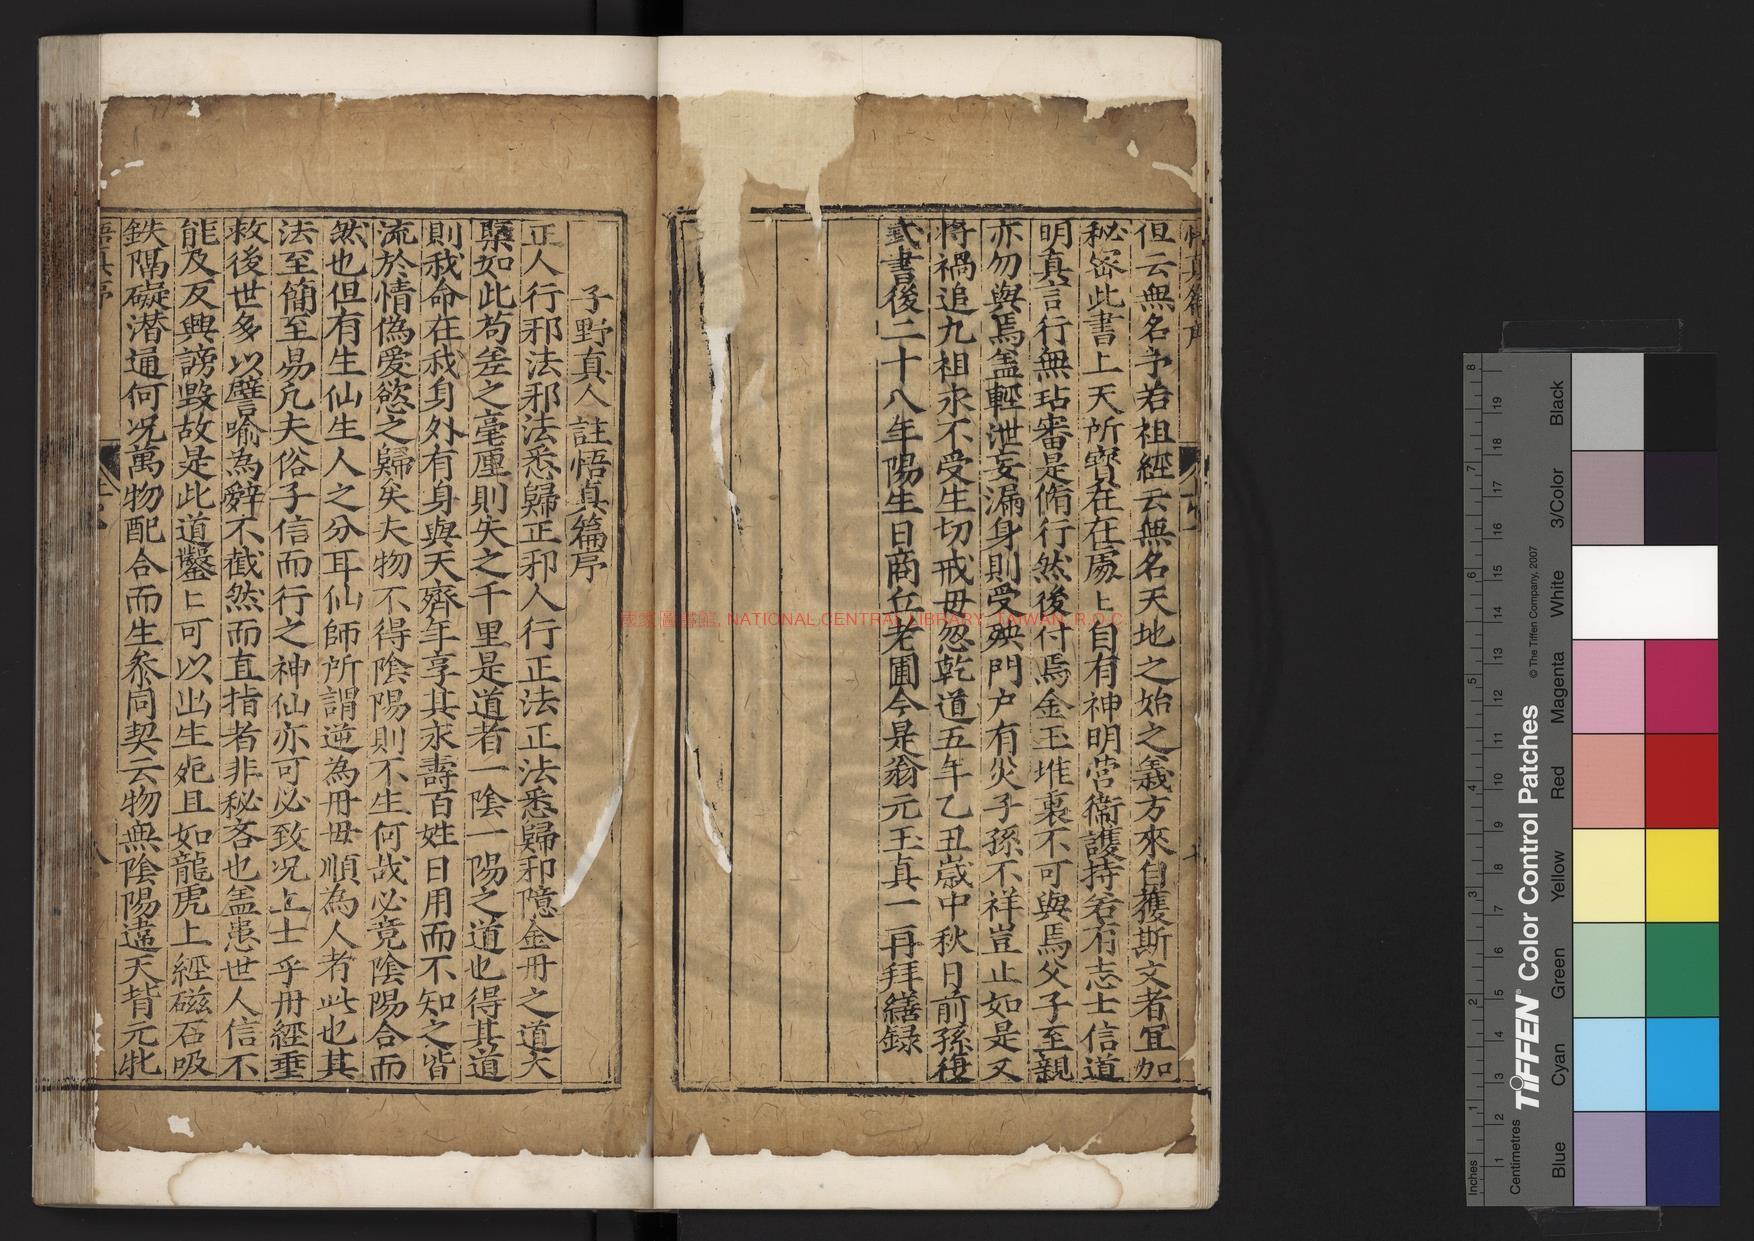 但云無名予若祖經云無名天地之始之義方來自獲斯文者宜加
秘密此書上天所寶在在處〻自有神明營衞護持若有志士信道
明真言行無玷審是脩行然後付焉金玉堆裏不可與焉父子至親
亦勿與焉盖輕泄妄漏身則受殃門户有災子孫不祥豈止如是又
將禍追九祖永不受生切戒毋忽乾道五年乙丑歲中秋日前孫復
弍書後二十八年陽生日商丘老圃今是翁元王真一再拜繕録
子野真人註悟真篇序
正人行邪法邪法悉歸正邪人行正法正法悉歸邪隱金丹之道大
槩如此苟差之毫厘則失之千里是道者一陰一陽之道也得其道
則我命在我身外有身與天齊年享其永壽百姓日用而不知之皆
流於情偽愛慾之歸矣夫物不得陰陽則不生何哉必竟陰陽合而
然也但有生仙生人之分耳仙師所謂逆為丹母順為人者此也其
法至簡至易凡夫俗子信而行之神仙亦可必致况上士乎丹經垂
救後世多以譬喻為辭不截然而直指者非秘吝也盖患世人信不
能及反興謗毀故是此道鑿〻可以出生死且如龍虎上經磁石吸
鉄隔礙潜通何况萬物配合而生叅同契云物無陰陽違天背元牝
悟真序
NATIONAL CENTRAL LIBRARY, TAIWAN, R.O.C
國家圖書館
TIFFEN® Color Control Patches
© The Tiffen Company, 2007
Inches
Centimetres
Blue
Cyan
Green
Yellow
Red
Magenta
White
3/Color
Black